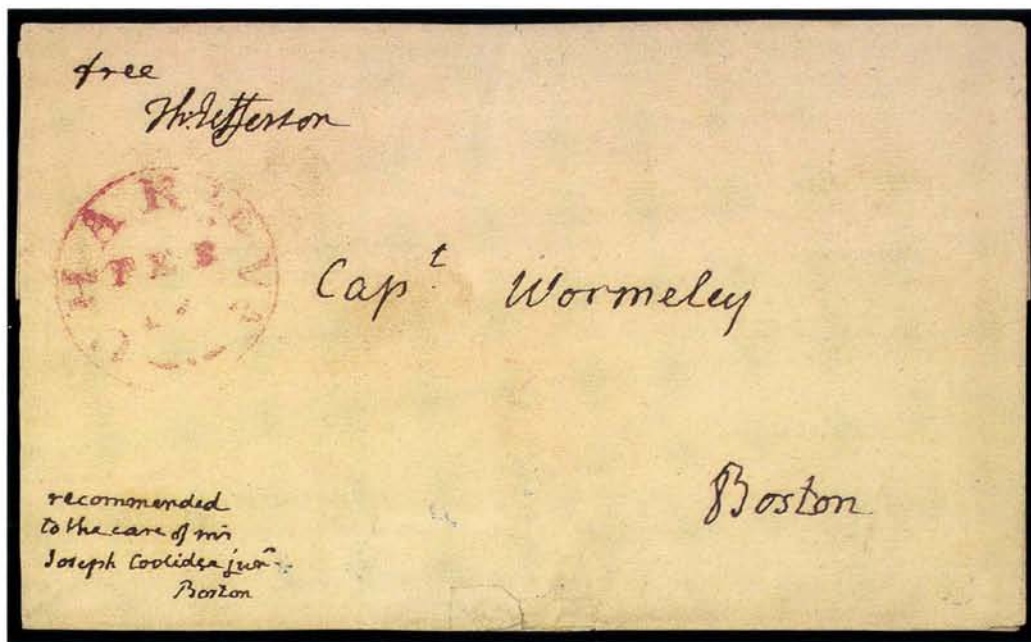 free
Th:Jefferson
CHARLEVE
FEB
Capt. Wormeley
Boston
recommended
to the care of mr
Joseph Coolidge junr.
Boston